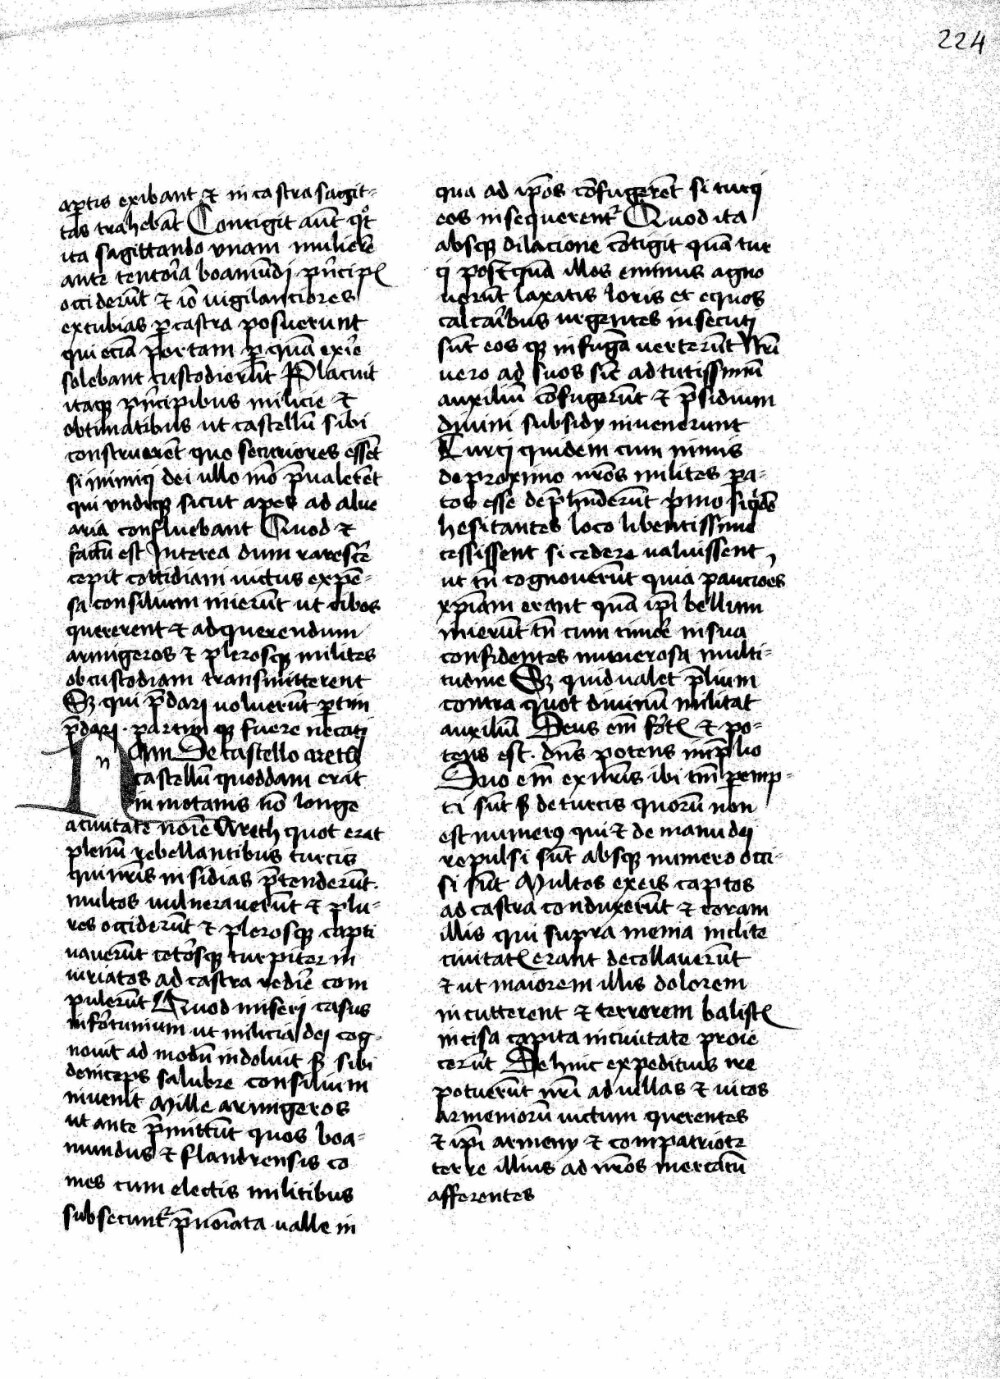 224
aptis exibant ⁊ in castra sagit-
tas trahebāt Contigit aūt qt̊
ita sagittando vnam mulierē
ante tentoīa boamūdi pn̄cipis
occiderūt ⁊ iō vigilanciores
extubias ꝑ castra posuerunt
qui eciā portam ꝑ quā exire
solebant custodierūt Placuit
itaqꝫ pn̄cipibus milicie ⁊
obtimatibus ut castellū sibi
construerēt quo securiores essēt
si inimici dei ullo mō p̄ualerēt
qui vndiqꝫ sicut apes ad alue
aria confluebant Quod ⁊
factū est Interea dum rarescē
cepit cottidiani uictus expē-
sa consilium inierūt ut cibos
quererent ⁊ ad querendum
armigeros ⁊ plerosqꝫ milites
ob custodiam transmitterent
Sꝫ qui p̄dari voluerūt ꝑtim
p̄dari · partim qꝫ fuere necati
n
Nam De castello areth
castellū quoddam erat
in motanis nō longe
a ciuitate noīe Areth quot erat
plenū rebellantibus turcis
qui nr̄is insidias p̄tenderūt.
multos uulnerauerūt ⁊ plu-
res occiderūt ⁊ plerosqꝫ capti
uauerūt ceto̊sqꝫ turpiter in
iuriatos ad castra redire com
pulerūt Quod miseri casus
infortunium ut milicia dei cog-
nouit ad modū indoluit sꝫ sibi
deniceps salubre consilium
inuenit Mille armigeros
ut ante p̄mittūt quos boa-
mundus ⁊ flandrensis co
mes cum electis militibus
subsecunt̄ p̄noīata ualle in
qua ad ip̄os cōfugerēt si turci
eos insequerent̄ Quod ita
absqꝫ dilacione cōtigit quā tur
ci postquā illos eminus agno
uerūt laxatis loris et equos
calcaribus urgentes insecuti
sūt eos qꝫ in fugā uerterūt Nr̄i
uero ad suos sic̄ ad tutissimū
auxiliū cōfugerūt ⁊ p̄sidium
diuini subsidy inuenerunt
Turci quidem cum nimis
de proximo nr̄os milites pa-
tos esse dep̄henderūt pimo siqdē
hesitantes loco libentissime
cessissent si cedere ualuissent
ut tn̄ cognouerūt quia pauciores
xp̄iani erant quā ip̄i bellum
inierūt tn̄ cum timore in sua
confidentes numerosa multi-
tudine Sꝫ quid ualet p̄lium
contra quot diuinū militat
auxiliū Deus em̄ fort̄ ⁊ po-
tens est. dn̄s potens in p̄lio
Duo em̄ ex nr̄is ibi tm̄ ꝑemp-
ti sūt sꝫ de turcis quorū non
est numerus qui ⁊ de manu dei
repulsi sūt absqꝫ numero occi-
si sūt Multos ex eis captos
ad castra conduxerūt ⁊ coram
illis qui supra menia inclite
ciuitatis erant decollauerūt
⁊ ut maiorem illis dolorem
incutterent ⁊ terrorem balistis
incisa capita in ciuitate proie
cerūt Dehinc expeditius ire
potuerūt nr̄i ad uillas ⁊ uicos
Armeniorū uictum querentes
⁊ ip̄i armeny ⁊ compatriote
terre illius ad nr̄os mercatū
afferentes